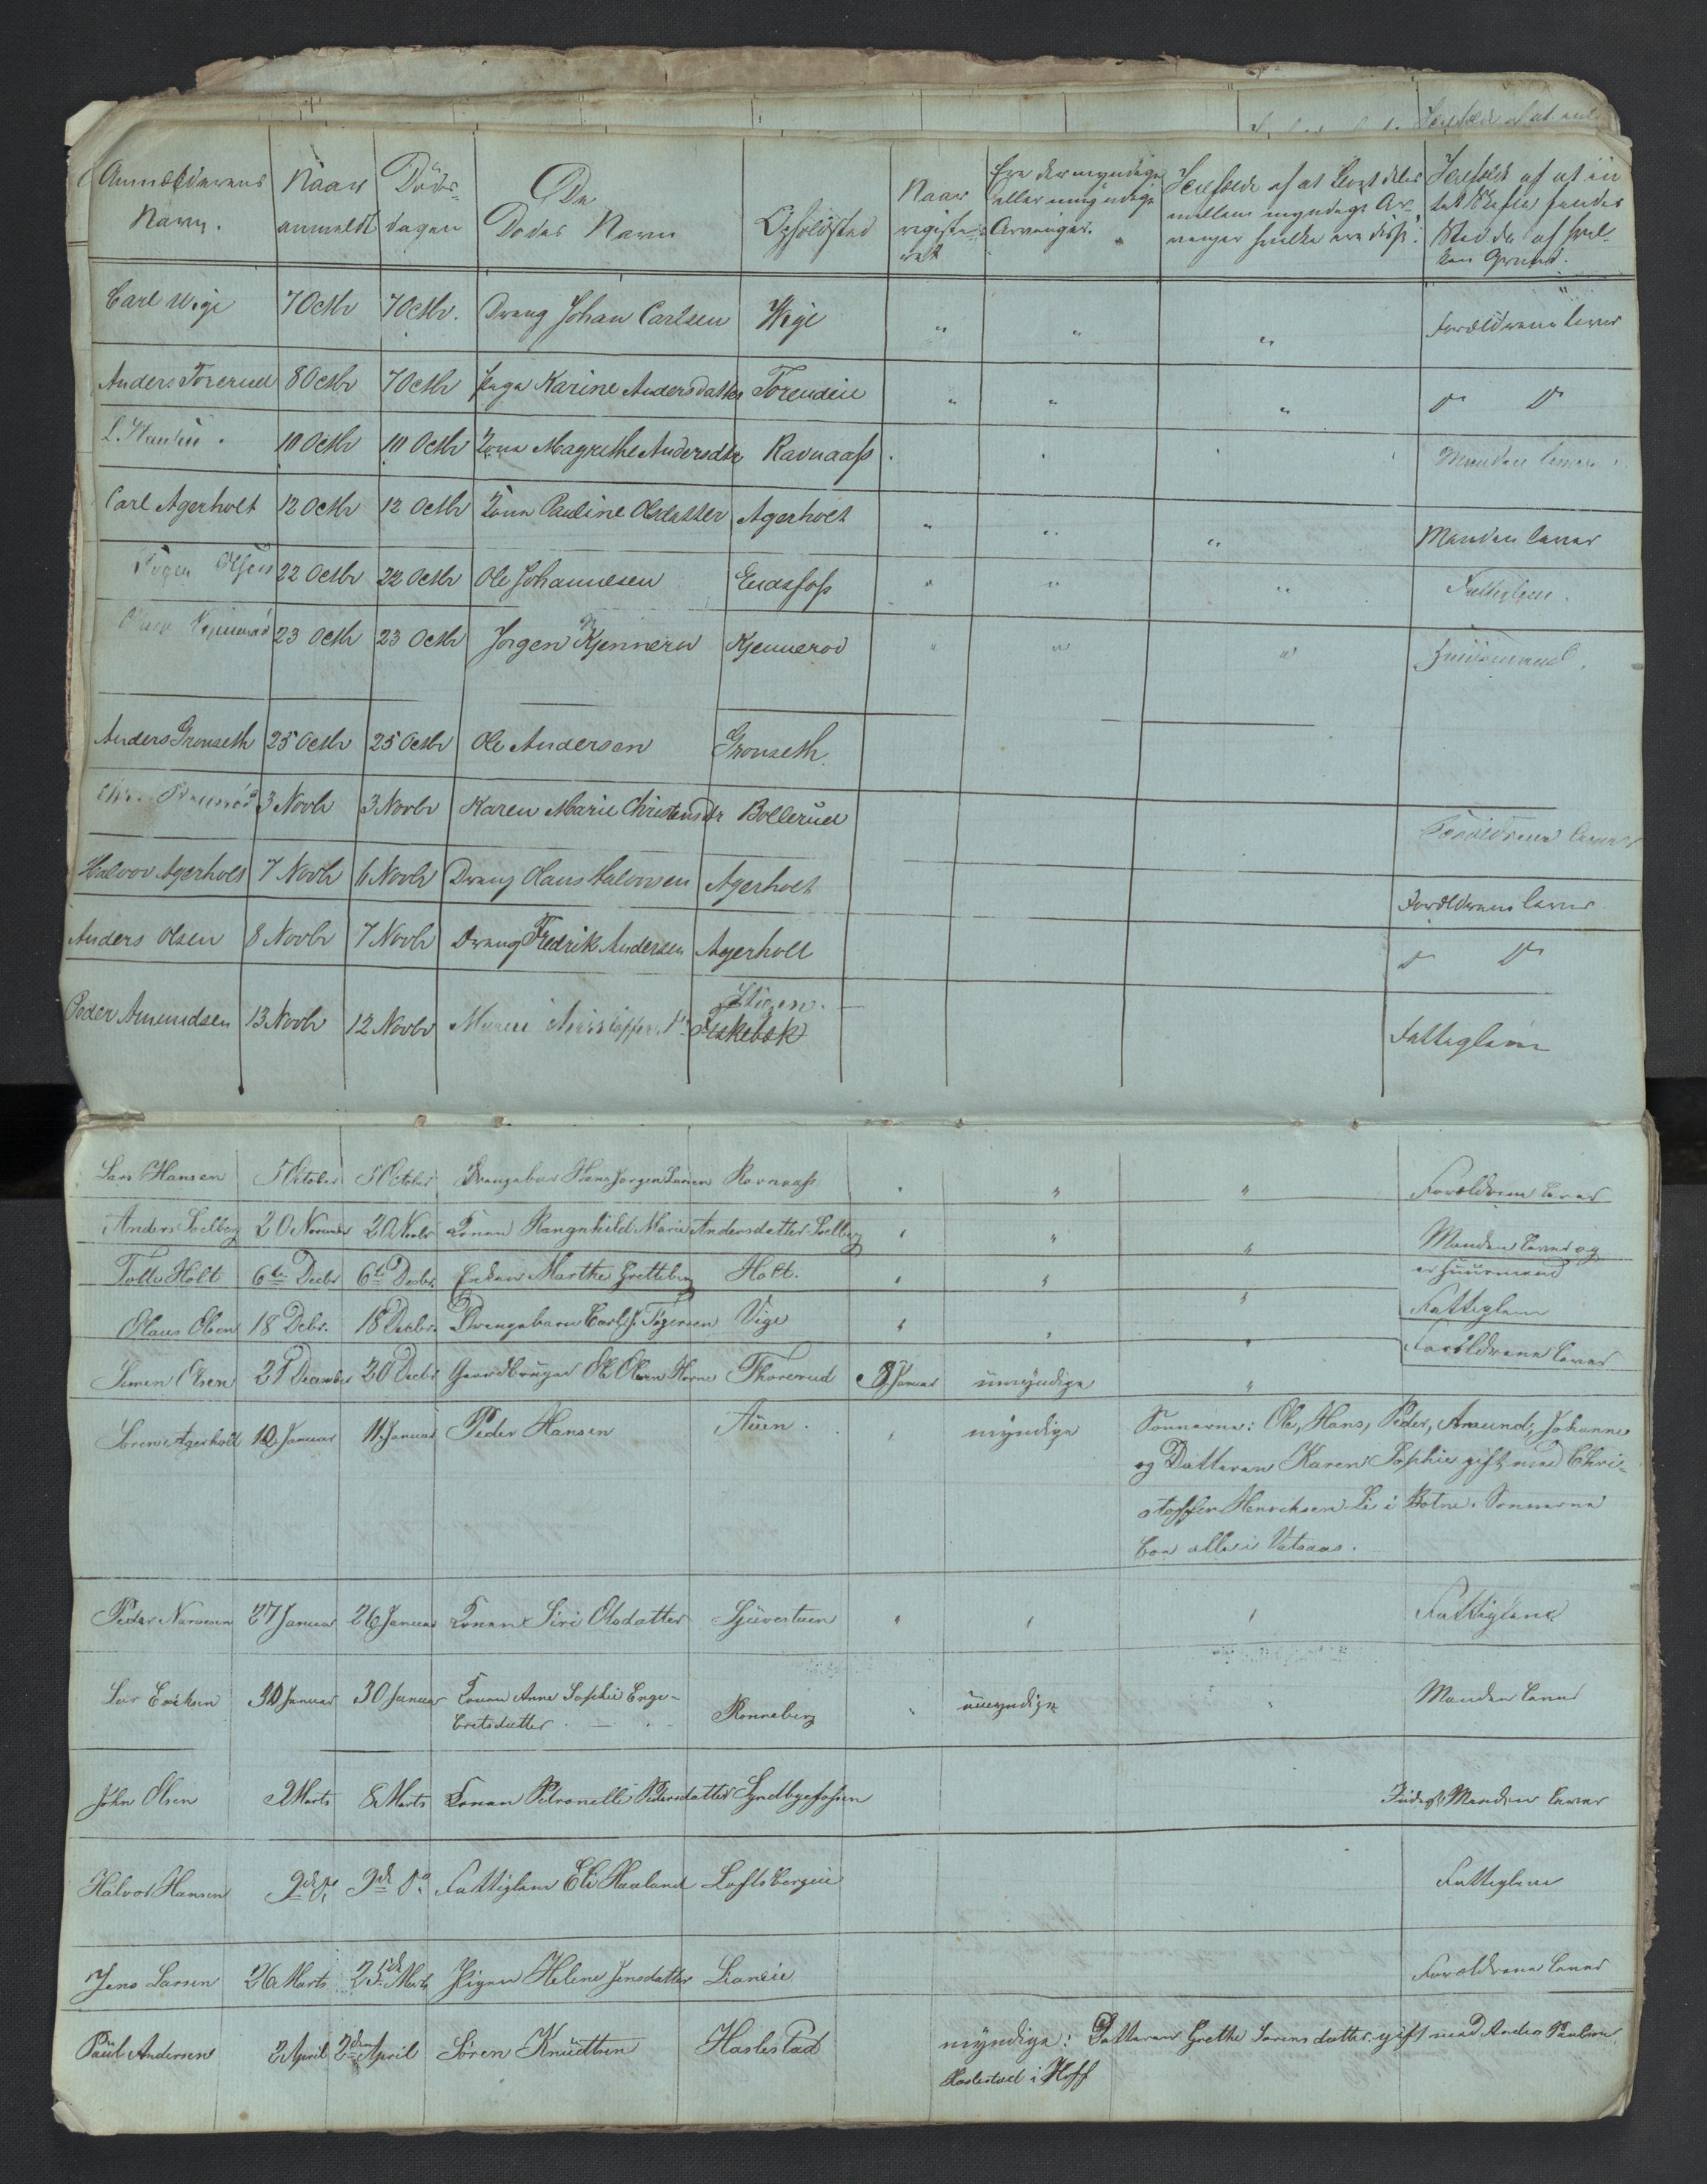 Anmelderens Navn. Naar anmeldt Döds- dagen Den Dödes Navn Opholdsted Naar registe- ret Ere der myndige eller umyndige Arvinger. I Tilfælde af at Boet deles mellem myndige Ar- vinger hvilke ere disse. I Tilfælde af at in- tet Skifte finder Sted da af hvil- ken Grund.
Carl Wige 7 Octbr 7 Octbr. Dreng Johan Carlsen Wige " " " Forældrene lever
Anders Torerud 8 Octbr 7 Octbr Pige Karine Andersdatter Toreudeie " " " do do
L. Hansen. 10 Octbr 10 Octbr Kone Magrethe Andersdtr Ravnaas Manden lever
Carl Agerholt 12 Octbr 12 Octbr Kone Pauline Olsdatter Agerholt " " " Manden lever
Olsen 22 Octbr 22 Octbr Ole Johannesen Eidsfoss " " " Fattiglem.
23 Octbr 23 Octbr Jörgen Kjennerud Kjennerod " " " Huusmand.
Anders Gronseth 25 Octbr 25 Octbr Ole Andersen Gronseth
3 Novbr 3 Novbr Karen Marie Christensdtr Bollerud Forældrene lever
Halvor Agerholt 7 Novbr 6 Novbr Dreng Olaus Halvorsen Agerholt Forældrene lever
Anders Olsen 8 Novbr 7 Novbr Dreng Fredrik Andersen Agerholt do do
Stigen.
Peder Amundsen 13 Novbr 12 Novbr Maren Christoffersdtr Fiskebæk Fattiglem
Lars Hansen 5 October 5 October Drengebarn Hans Jørgen Larsen Ravnaas " " " Forældrene lever
Anders Solberg 20 November 20 Novbr Konen Rangnhild Marie Andersdatter Solberg " " " Manden lever og
er Huusmand
Tolle Holt 6te Decbr 6te Decbr. Enken Marthe Gretteberg Holt. " " " Fattiglem
Olaus Olsen 18 Decbr. 18 Decbr. Drengebarn Carl J. Tøgersen Vige " " " Forældrene lever
Simen Olsen 21 December 20 Decbr Gaardbruger Ole Olsen Horne Thorerud 8 Januar umyndige "
Søren Agerholt 12 Januar 11 Januar Peder Hansen Auen. " myndige Sønnerne: Ole, Hans, Peder, Amund, Johannes
og Datteren Karen Sophie gift med Chri-
stoffer Henriksen Lie i Botne. Sønnerne
boe alle i Vataas.
Peder Narvesen 27 Januar 26 Januar Konen Siri Olsdatter Gjuvestuen " " " Fattiglem
Lars Eriksen 30 Januar 30 Januar Konen Anne Sophie Enge-
bretsdatter Ronneberg " umyndige " Manden lever
John Olsen 9 Marts 8 Marts Konen Petronelle Pedersdatter Syndbyefossen Inderst Manden lever
Halvor Hansen 9de do 9de do Fattiglem Eli Haaland Loftsbergeie Fattiglem
Jens Larsen 26 Marts 25de Marts Pigen Helene Jensdatter Lianeie Forældrene lever
Paul Andersen 2 April 2den April Søren Knudtsen Haslestad myndige: Datteren Grethe Sørensdatter gift med Anders Paulsen
Haslestad i Hoff